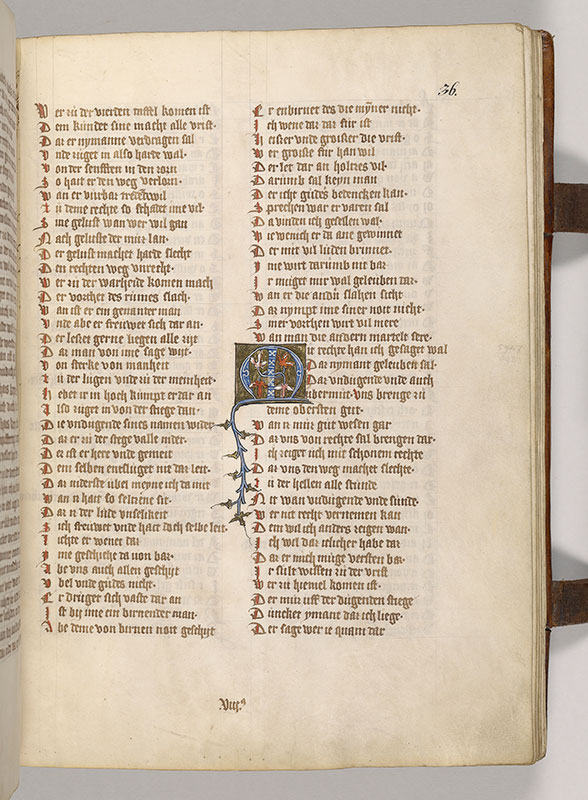 36.
Wer zu der vierden taffel komen ist
Dem kundet sine macht alle vrist.
Dar er nymanne verdragen sal
Vnde zuget in also harde wal.
Von der senfften in den zorn
So hait er den weg verlorn.
Wan er vurbaz
Zu deme rechte so schadet ime vil.
Sine gelust wan wer wil gan
Nach geluste der muz lan.
Der gelust machet harde slecht
Den rechten weg vnrecht.
Wer zu der warheide komen mach
Der vorchet des rumes slach.
Wan ist er ein genanter man
Vnde abe er freuwet sich dar an.
Der leser gerne liegen alle zijt
Dar man von ime sage wijt.
Von sterke von manheit
Zu der lugen vnde zu der meinheit.
Hebet er in hoch kumpt er dar an
Also zuget in von der stiege dan
Die vndugende sines namen wider
Dar er zu der stege valle nider.
Der ist er here vnde gemeit
Dem selben enfluget nit dar leit.
Dar niderste vbel meyne ich da mit
Wan it hait so seltzene sit.
Dar zu der bilde vnselikeit
Sich freuwet vnde hait doch selbe leit.
Ichte er wenet daz
Ime geschiehe da von baz.
Abe vns auch allen geschijt
Vbel vnde gudes nicht.
Er druget sich vaste dar an
Ist bij ime ein birnender man.
Abe deme von birnen noit geschijt
Er enbirnet des die mynner nicht.
Ich wene dar dar fur ist
Heisser vnde groisser die vrist.
Wer groisse fur han wil
Der lez dar an holtzes vil.
Darumb sal keyn man
Der icht gudes bedencken kan.
Sprechen war er varen sal
Da vinden ich gesellen wal.
Wie wenich er da ane gewinnet
Der mit vil luden brinnet.
Ime wirt darumb nit baz
Ir muget mir wal geleuben daz.
Wan er die andern slahen sicht
Dar nympt ime siner noit nicht.
Mer vorchten wirt vil mere
Wan man die andern martelt sere.
Nu rechte han ich gesaget wal
Dar nymant geleuben sal.
Dar vndugende vnde auch
vbermut vns brenge zu
deme obersten gut.
Wan n mir gut wesen gar
Dar vns von rechte sal brengen dar.
Ich zeiget uch mit schonem rechte
Dar vns den weg machet slechte.
Zu der hellen alle stunde
Nit wan vndugende vnde sunde.
Wer nit recht vernemen kan
Dem wil ich anders zeigen wan.
Ich wil dar iclicher habe daz
Dar er mich muge versten baz.
Ir sult wissen zu der vrist
Wer zu hiemel komen ist.
Der muz uff der dugenden stiege
Duncket ymant daz ich liege.
Der sage wer ie quam dar